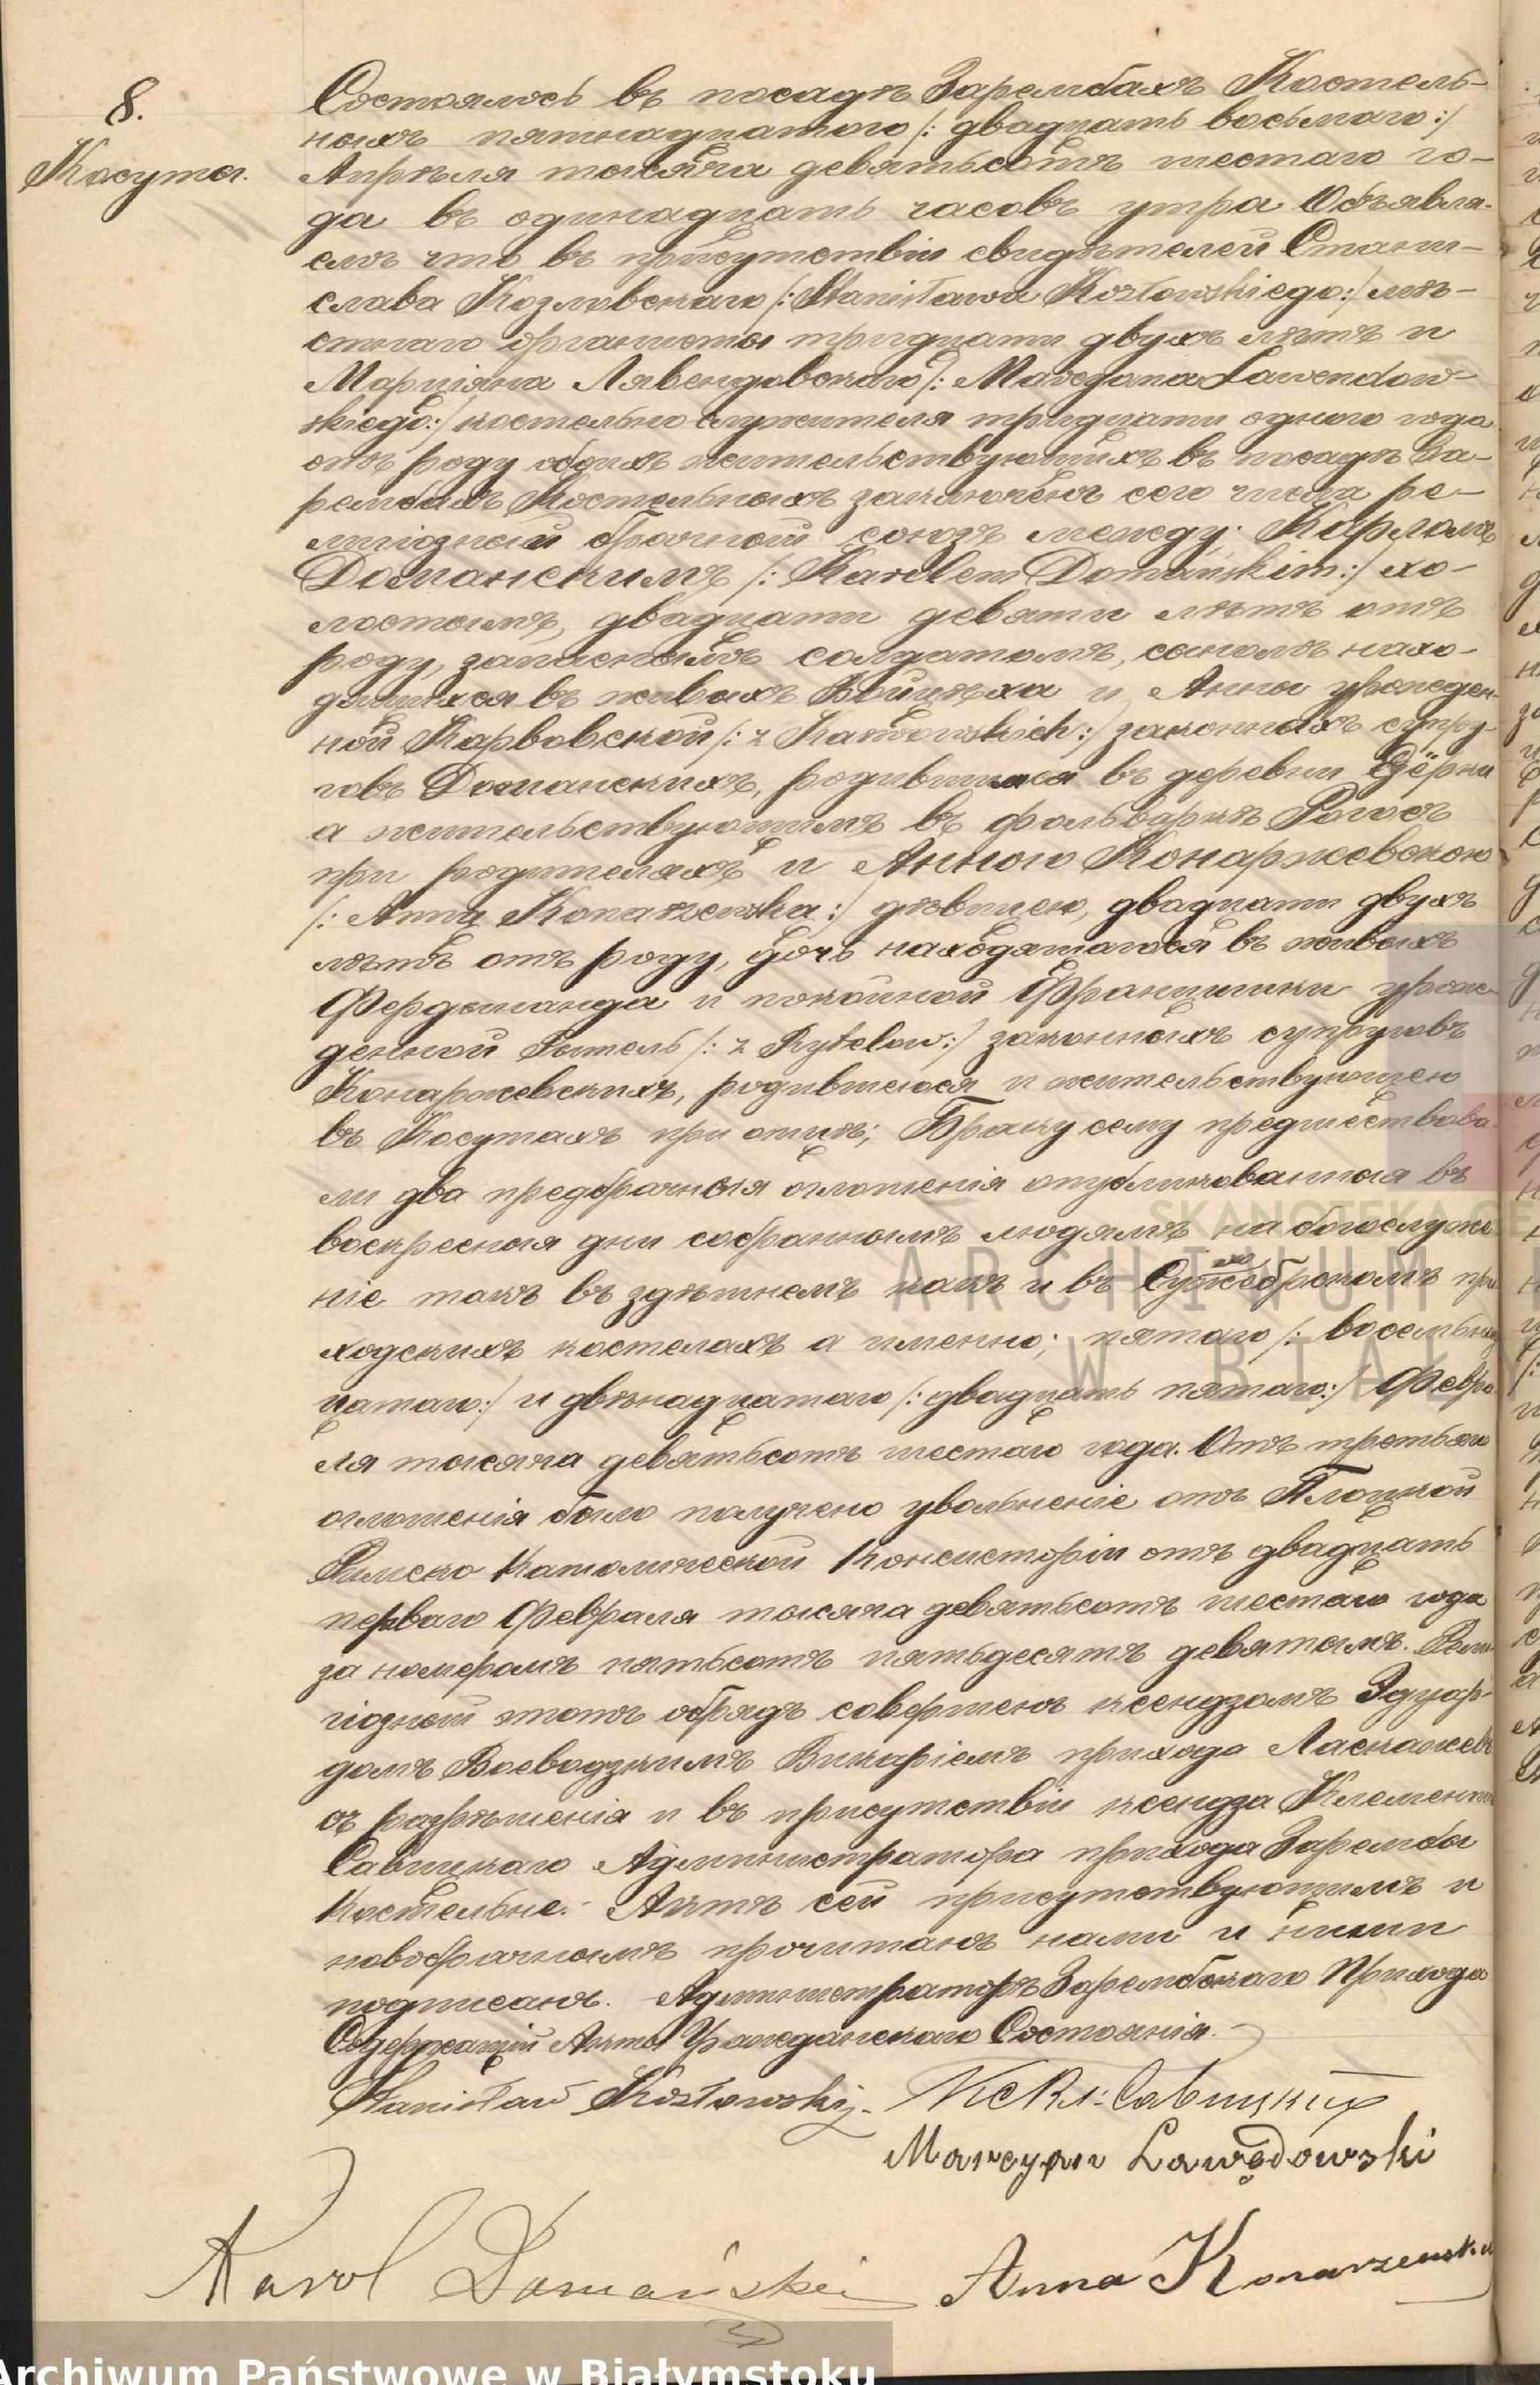 8.
Косуты.
Состоялось въ посадѣ Зарембахъ Костель-
ныхъ пятнадцатаго /: двадцать восьмаго :/
Апрѣля тысяча девятьсотъ шестаго го-
да въ одинадцать часовъ утра Объявля-
емъ что въ присутствіи свидѣтелей Стани-
слава Козловскаго /: Stanisława Kozłowskiego :/ мѣ-
стнаго органисты тридцати двухъ лѣтъ и
Марціяна Лавендовскаго /: Marcyana Lawendow-
skiego :/ костельно служителя тридцати одного года
отъ роду обоихъ жительствующихъ въ посадѣ За-
рембахъ Костельныхъ заключенъ сего числа ре-
лигіозный брачный союзъ между: Карломъ
Доманскимъ /: Karolem Domańskim :/ хо-
лостымъ, двадцати девяти лѣтъ отъ
роду, запаснымъ солдатомъ, сыномъ нахо-
дящихся въ живыхъ Войцѣха и Анны урожден-
ной Карвовской /: z Karwowskich :/ законныхъ супру-
говъ Доманскихъ, родившимся въ деревни
а жительствующимъ въ фольваркѣ Рогосъ
при родителяхъ и Анною Конаржевскою
/: Anną Konarzewską :/ дѣвицею, двадцати двухъ
лѣтъ отъ роду, дочь находящагося въ живыхъ
Фердинанда и покойной Францишки урож-
денной Рытель /: z Rytelow :/ законныхъ супруговъ
Конаржевскихъ, родившеюся и жительствующею
въ Косутахъ при отцѣ; Браку сему предшествова-
ли два предбрачныя оглашенія опубликованныя въ
воскресныя дни собраннымъ людямъ на богослуже
ніе такъ въ здѣшнемъ какъ и въ при
ходскихъ костелахъ а именно; пятаго /: восемьнад
цатаго :/ и двѣнадцатаго /: двадцать пятаго :/ Февра
ля тысяча девятьсотъ шестаго года. Отъ третьяго
оглашенія было получено увольненіе отъ Плоцкой
Римско Католической Консисторіи отъ двадцать
перваго Февраля тысяча девятьсотъ шестаго года
за номеромъ пятьсотъ пятьдесятъ девятымъ. Рели
гіозный этотъ обрядъ совершенъ ксендзомъ Эдуар-
домъ Воеводзкимъ Викаріемъ прихода Ласкажевъ
съ разрѣшенія и въ присутствіи ксендза Клемента
Савицкаго Администратора прихода Зарембы
Костельне. Актъ сей присутствующимъ и
новобрачнымъ прочитанъ нами и ними
подписанъ. Администраторъ Зарембскаго Прихода
Содержащій Акты Гражданскаго Состоянія.
Stanisław Kozłowski. Кс Кл: Савицкій
Marcyan Lawędowski
Karol Domański Anna Konarzewska
SKANOTEKA.GE
ARCHIWUM
W BIAŁY
Archiwum Państwowe w Białymstoku